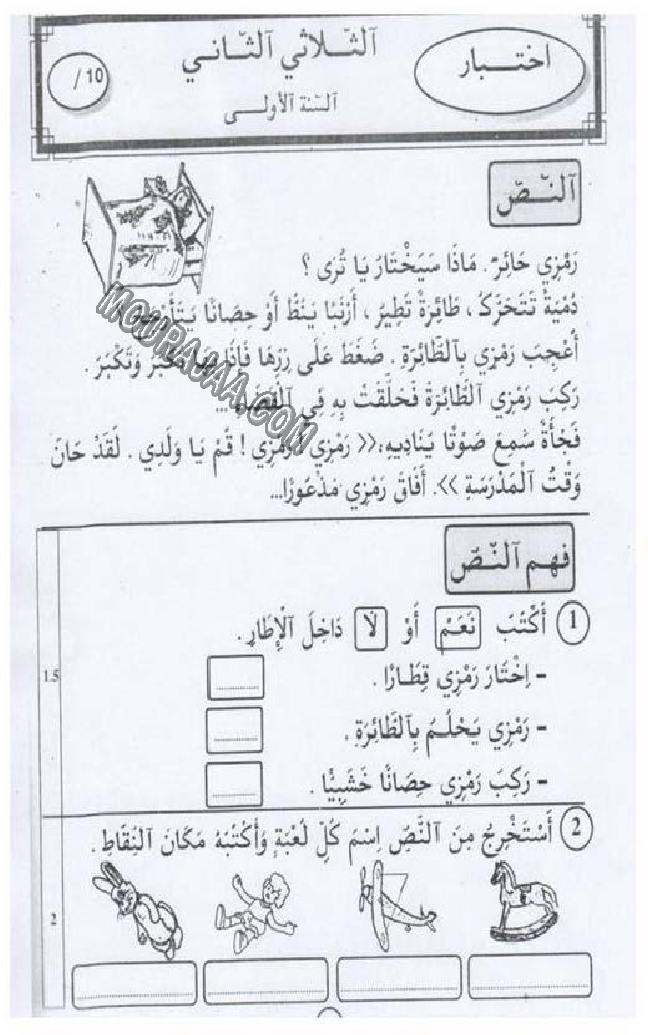 اختبار
الثّلاثي الثّاني
السّنة الأولى
/ 10
النّصّ
رَمْزِي حَائِرٌ. مَاذَا سَيَخْتَارُ يَا تُرَى ؟
دُمْيَةٌ تَتَحَرَّكُ ، طَائِرَةٌ تَطِيرُ ، أَرْنَبًا يَنُطُّ أَوْ حِصَانًا
أُعْجِبَ رَمْزِي بِالطَّائِرَةِ . ضَغَطَ عَلَى زِرِّهَا فَإِذَا بِهَا تَكْبُرُ وَتَكْبُرُ .
رَكِبَ رَمْزِي الطَّائِرَةَ فَحَلَّقَتْ بِهِ فِي الْفَضَاءِ ...
فَجْأَةً سَمِعَ صَوْتًا يُنَادِيهِ،<< رَمْزِي ! رَمْزِي ! قُمْ يَا وَلَدِي . لَقَدْ حَانَ
وَقْتُ الْمَدْرَسَةِ >>. أَفَاقَ رَمْزِي مَذْعُورًا...
MOURAJAA.COM
فهم النّصّ
1 أَكْتُبُ نَعَمْ أَوْ لَا دَاخِلَ الْإِطَارِ .
1.5
- اِخْتَارَ رَمْزِي قِطَارًا . ............
- رَمْزِي يَحْلُمُ بِالطَّائِرَةِ . ............
- رَكِبَ رَمْزِي حِصَانًا خَشَبِيًّا . ............
2 أَسْتَخْرِجُ مِنَ النَّصِّ اِسْمَ كُلِّ لُعْبَةٍ وَأَكْتُبُهُ مَكَانَ النِّقَاطِ .
2